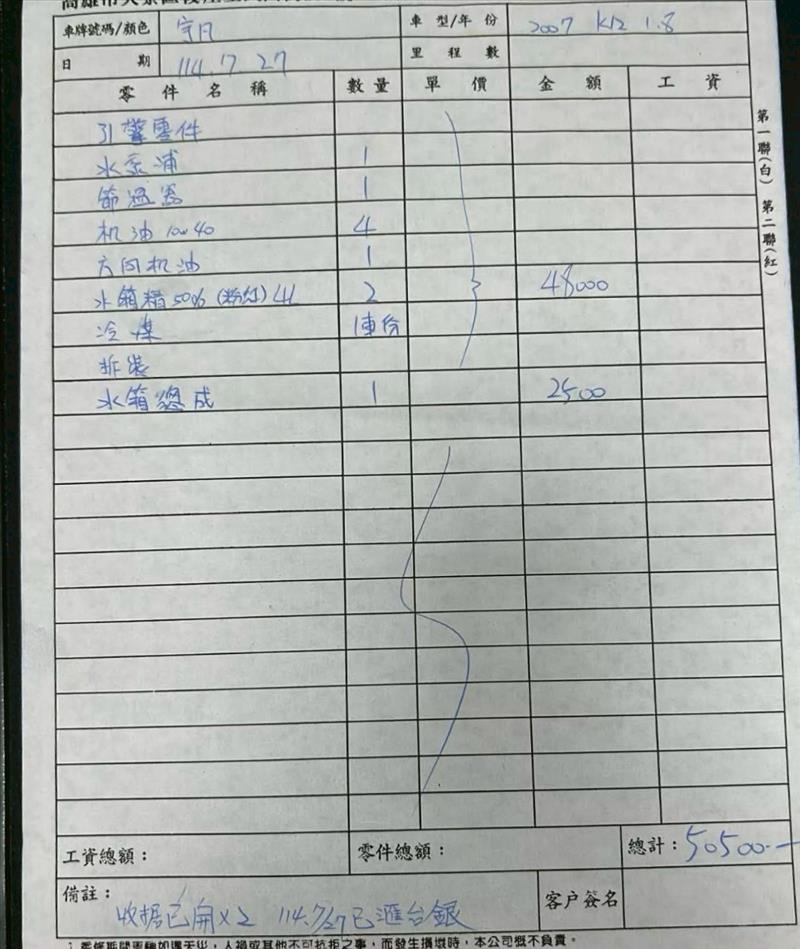 車牌號碼/顏色 守凡 車型/年份 2007 K12 1.8
日期 114.7.27 里程數
零件名稱 數量 單價 金額 工資
引擎零件
水泵浦 1
節溫器 1
机油 10w40 4
方向机油 1
水箱精50% (粉紅) 4L 2 48000
冷媒 1車份
拆裝
水箱總成 1 2500
第一聯(白) 第二聯(紅)
工資總額： 零件總額： 總計：50500.—
備註： 收据已開x2 114.7/27已滙台銀 客户簽名
1.委修期間車輛如遇天災，人損或其他不可抗拒之事，而發生損壞時，本公司概不負責。